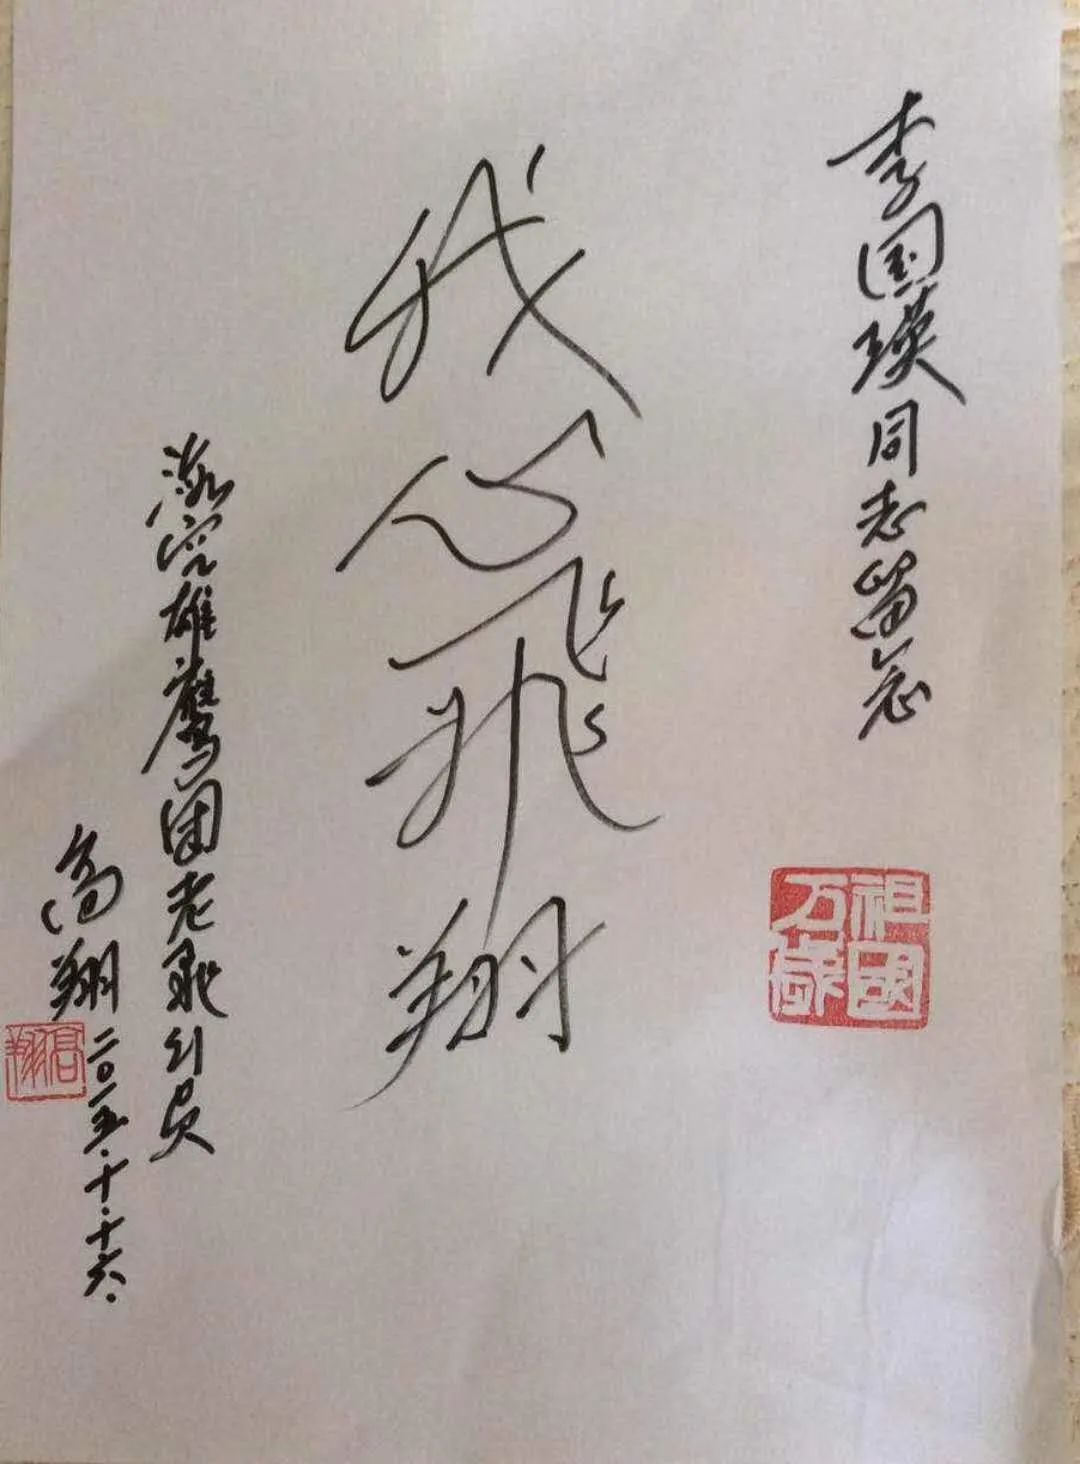 李国瑛同志留念
祖國
万歲
我心飞翔
激光雄鹰团老飞行员
高翔 二〇一五·十·十六·
高翔